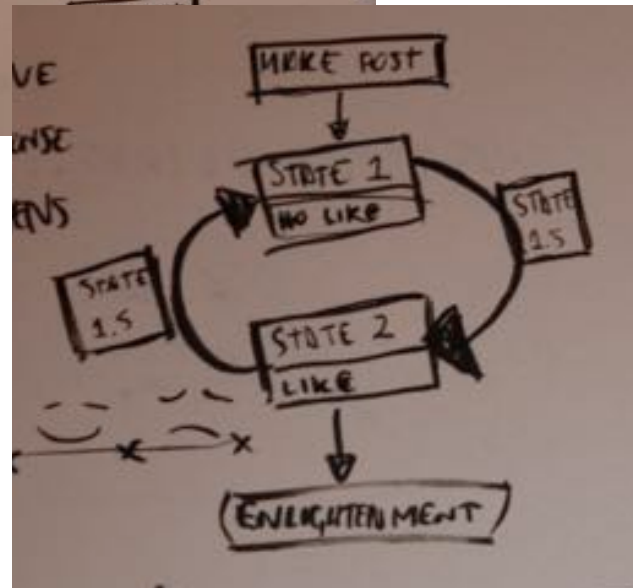 VE
ENSE
ENS
MAKE POST
STATE 1
NO LIKE
STATE
1.5
STATE
1.5
STATE 2
LIKE
ENLIGHTENMENT